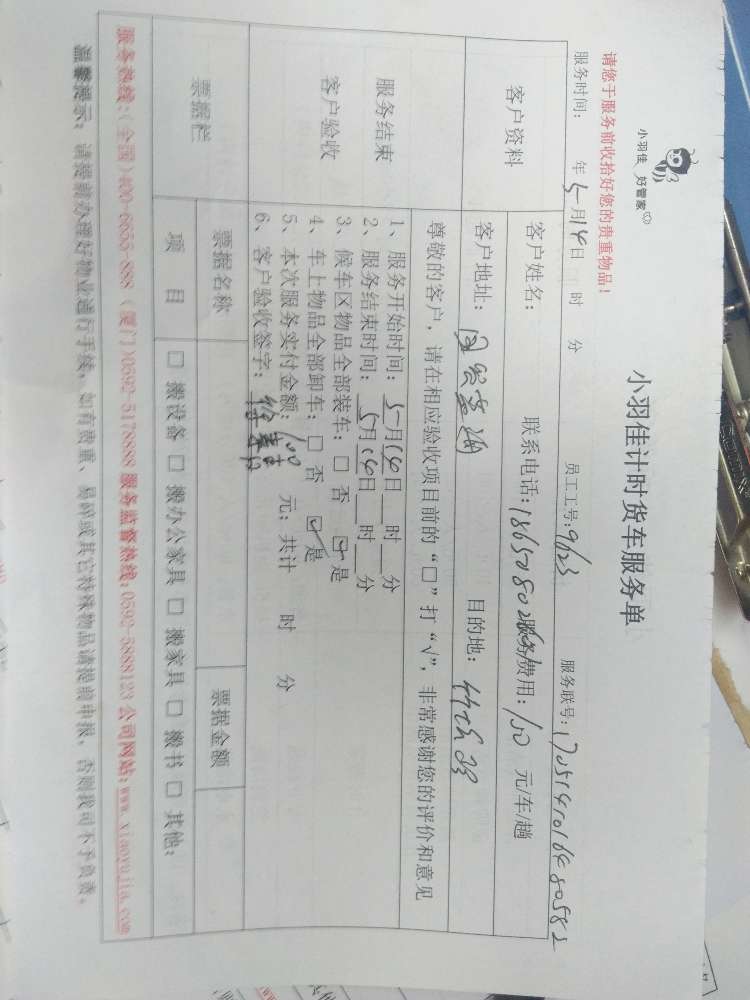 小羽佳 好管家
小羽佳计时货车服务单
请您于服务前收拾好您的贵重物品！
服务时间： 年 5月14日 时 分 员工工号：9123 服务联号：1705141016480582
客户资料
客户姓名： 联系电话： 服务费用：150 元/车/趟
客户地址： 目的地：
服务结束
客户验收
尊敬的客户，请在相应验收项目前的“□”打“√”，非常感谢您的评价和意见
1、服务开始时间：5月14日 时 分
2、服务结束时间：5月14日 时 分
3、候车区物品全部装车：□ 否 ☑ 是
4、车上物品全部卸车：□ 否 ☑ 是
5、本次服务实付金额： 元；共计 时 分
6、客户验收签字：
票据栏
票据名称 票据金额
项 目 □ 搬设备 □ 搬办公家具 □ 搬家具 □ 搬书 □ 其他：
服务热线：（全国）400-6655-888 （厦门）0592-5178888 服务监督热线：0592-5888123 公司网站：www.xiaoyujia.com
温馨提示：请提前办理好物业通行手续，如有贵重、易碎或其它特殊物品请提前申报，否则我司不予负责。